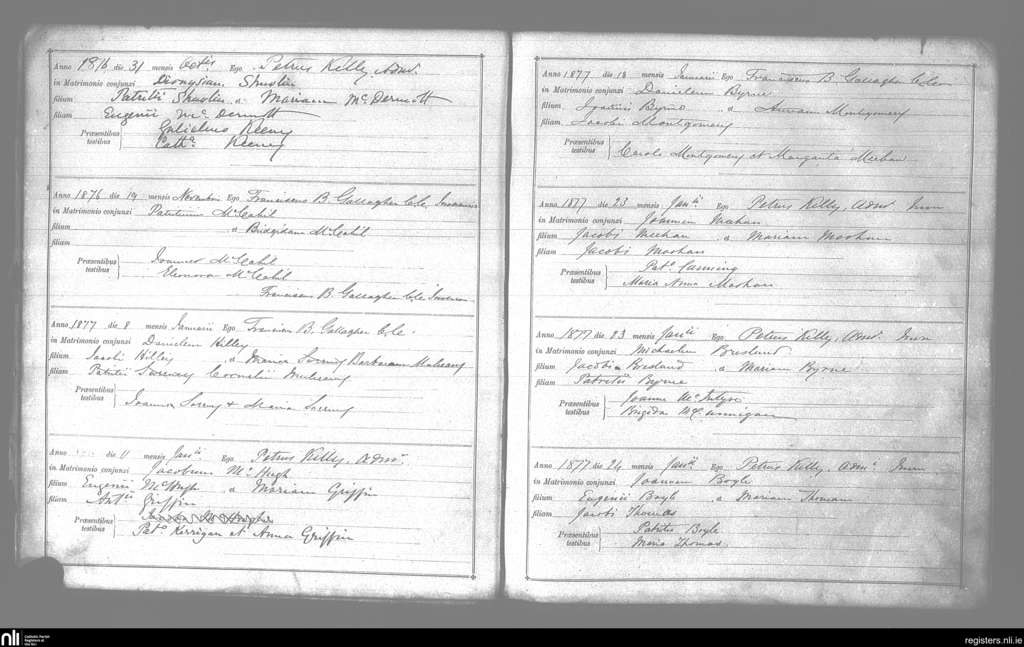 Anno 1876 die 31 mensis Octis Ego Petrus Kelly Admr.
in Matrimonio conjunxi Dionysium
filium Patritii a Mariam McDermott
filiam Eugenii McDermott
Præsentibus Gulielmo Keeney
testibus Catha. Keeney
Anno 1876 die 19 mensis Novembris Ego Franciscus B. Gallagher C.C.
in Matrimonio conjunxi Patritium McCahil
filium a Bridgidam McCahil
filiam
Præsentibus Joannes McCahil
testibus Eleonora McCahil
Franciscus B. Gallagher C.C.
Anno 1877 die 8 mensis Januarii Ego Franciscus B. Gallagher C.C.
in Matrimonio conjunxi Danielem Hilley
filium Jacobi Hilley a Barbaram
filiam Patritii Cornelii
Præsentibus
testibus Joannes & Maria
Anno die 11 mensis Janii Ego Petrus Kelly, Admr.
in Matrimonio conjunxi Jacobum McHugh
filium Eugenii McHugh a Mariam Griffin
filiam Antii Griffin
Præsentibus
testibus Pato. Kerrigan et Anna Griffin
Anno 1877 die 18 mensis Januarii Ego Franciscus B. Gallagher
in Matrimonio conjunxi Danielem Byrne
filium Ignatii Byrne a Annam Montgomery
filiam Jacobi Montgomery
Præsentibus
testibus Carolo Montgomery et Margarita Meehan
Anno 1877 die 23 mensis Janii Ego Petrus Kelly, Admr
in Matrimonio conjunxi Joannem Meehan
filium Jacobi Meehan a Mariam Moohan
filiam Jacobi Moohan
Præsentibus Pato.
testibus Maria Anna Moohan
Anno 1877 die 23 mensis Janii Ego Petrus Kelly, Admr.
in Matrimonio conjunxi Michaelem Breslaud
filium Jacobi Breslaud a Mariam Byrne
filiam Patritii Byrne
Præsentibus Joanne McIntyre
testibus Brigida
Anno 1877 die 24 mensis Janii Ego Petrus Kelly, Admr.
in Matrimonio conjunxi Joannem Boyle
filium Eugenii Boyle a Mariam Thomas
filiam Jacobi Thomas
Præsentibus Patritio Boyle
testibus Maria Thomas
nli Catholic Parish Registers at the NLI
registers.nli.ie